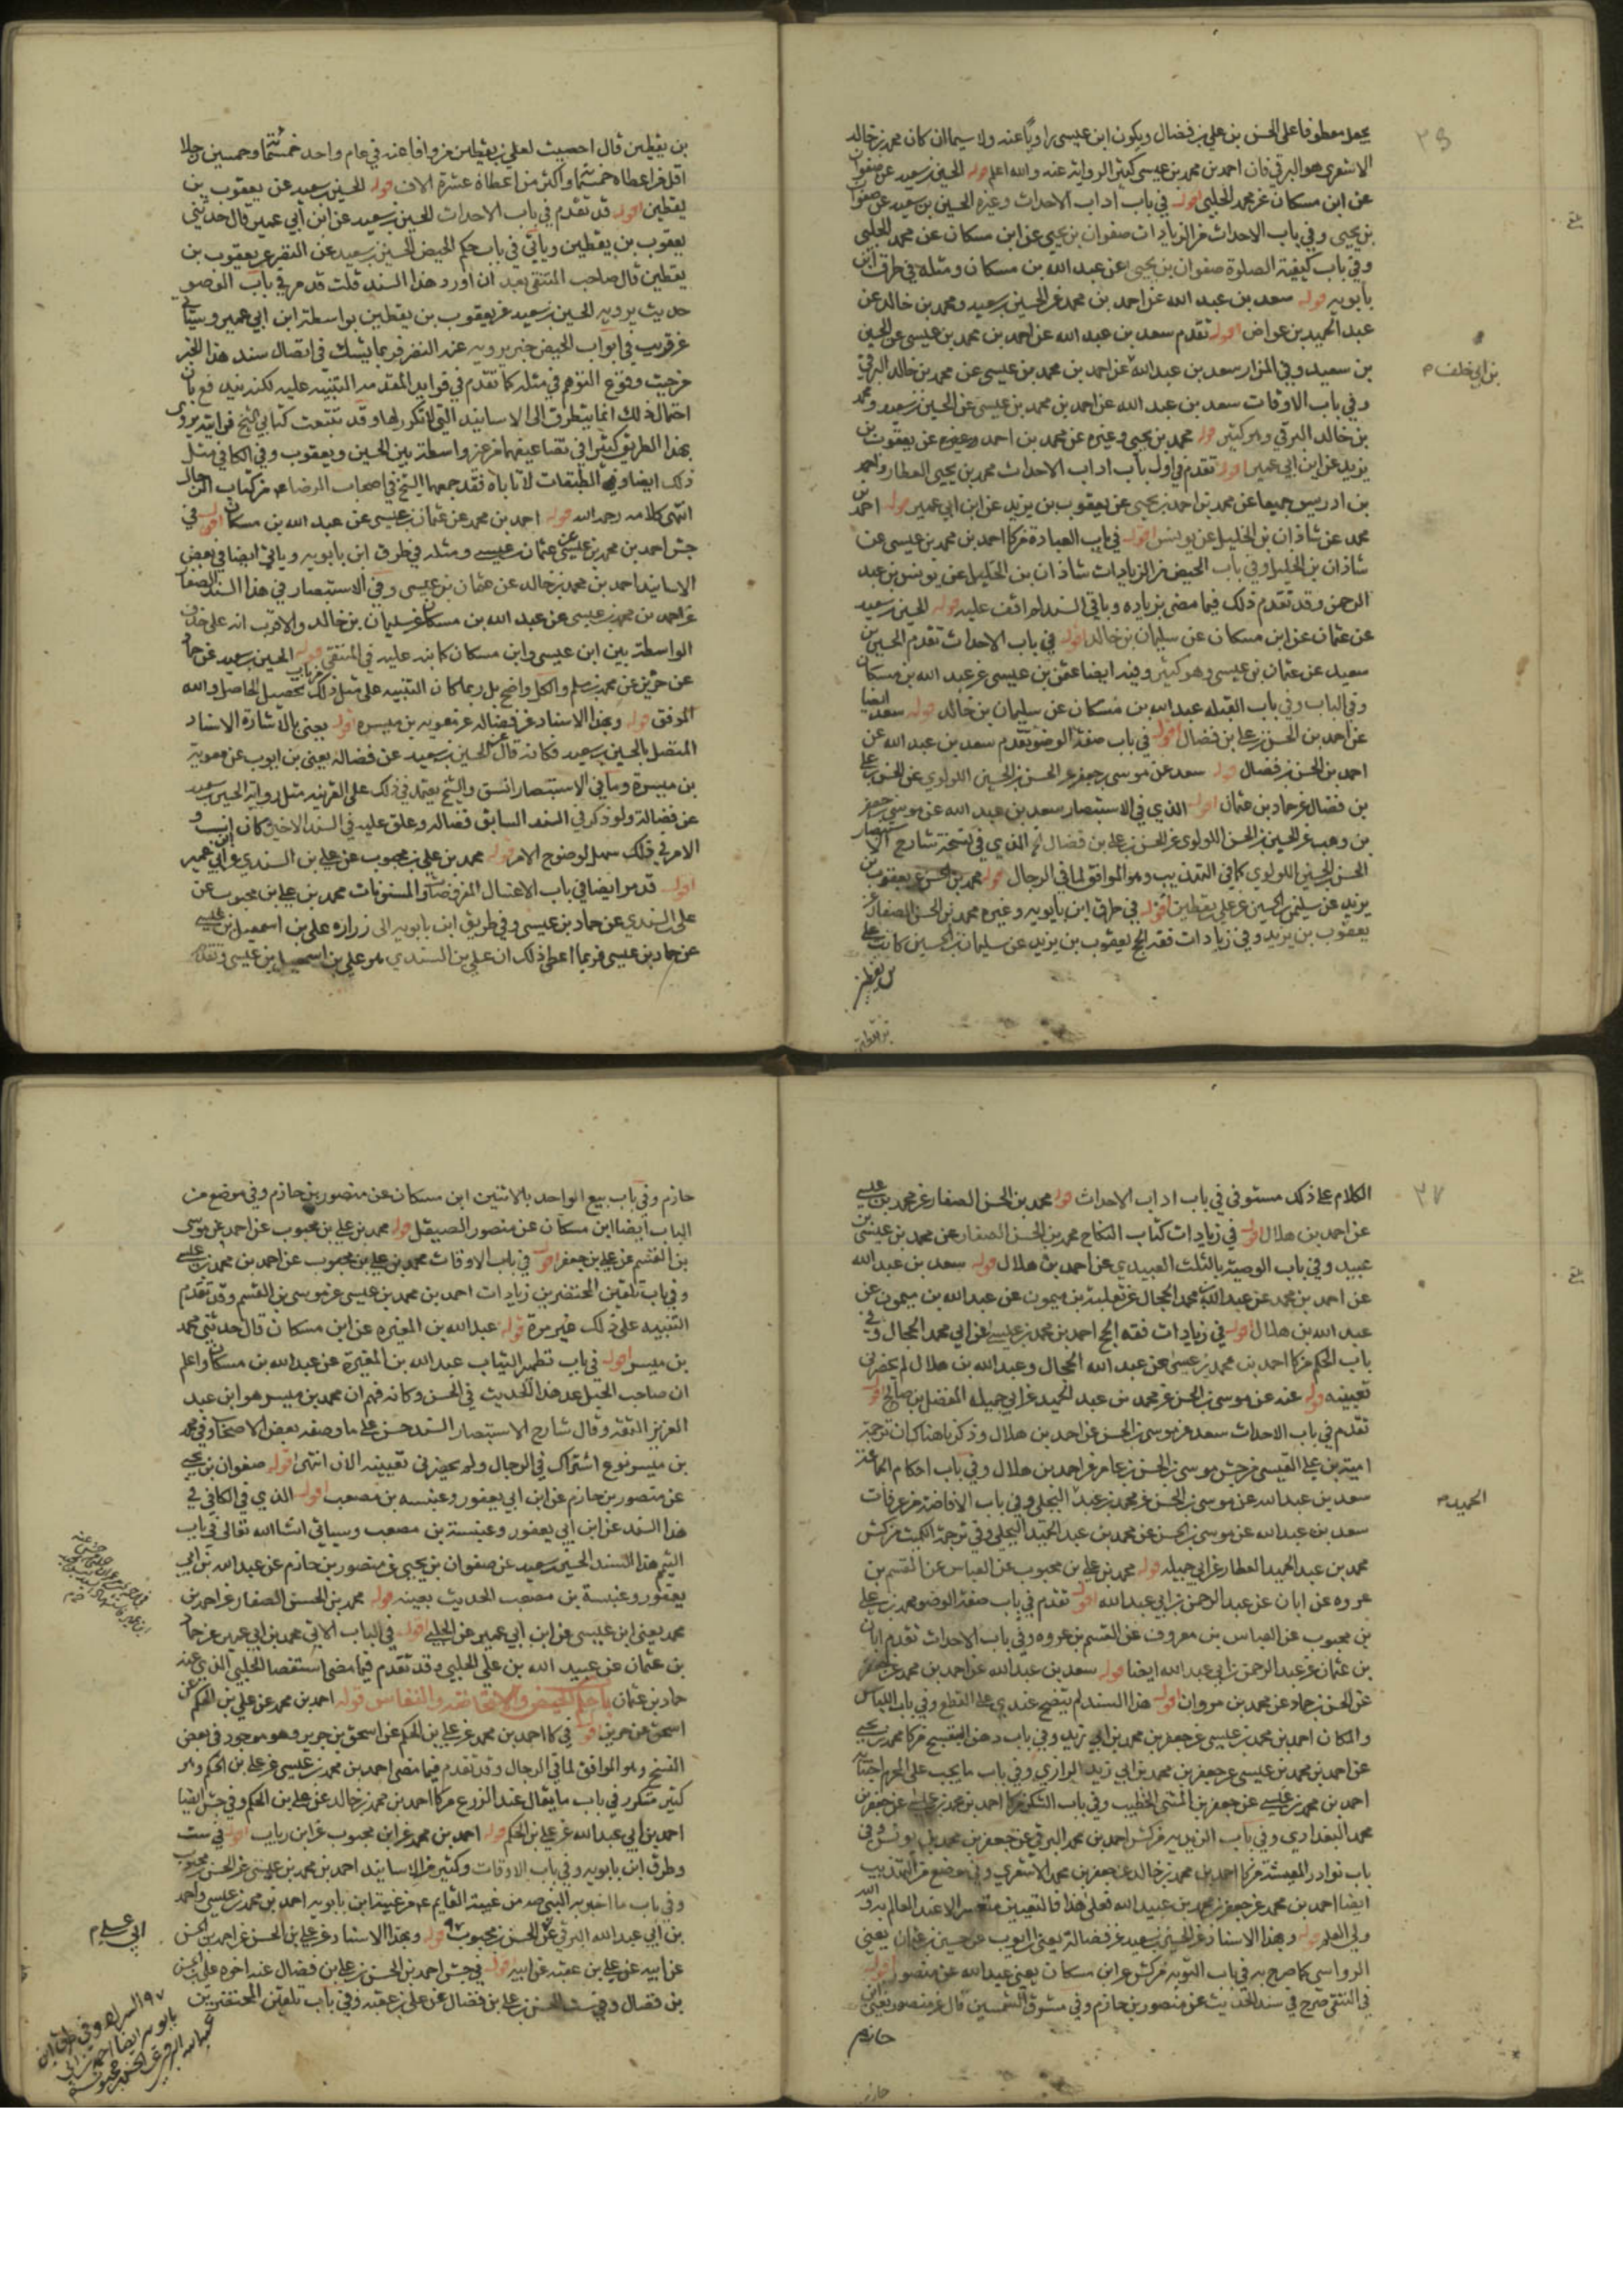 يجعل معطوفا على الحسن بن علي بن فضال ويكون ابن عيسى راويا عنه ولا سيما ان كان محمد بن خالد
الاشعري هو البرقي فان احمد بن محمد بن عيسى كثير الرواية عنه والله اعلم قوله الحسين بن سعيد عن صفوان
عن ابن مسكان عن محمد الحلبي اقول في باب اداب الاحداث وغيره الحسين بن سعيد عن صفوان
بن يحيى وفي باب الاحداث من الزيادات صفوان بن يحيى عن ابن مسكان عن محمد الحلبي
وفي باب كيفية الصلوة صفوان بن يحيى عن عبد الله بن مسكان ومثله في طرق ابن
بابويه قوله سعد بن عبد الله عن احمد بن محمد عن الحسين بن سعيد ومحمد بن خالد عن
عبد الحميد بن عواض اقول تقدم سعد بن عبد الله عن احمد بن محمد بن عيسى عن الحسين
بن سعيد وفي المزار سعد بن عبد الله عن احمد بن محمد بن عيسى عن محمد بن خالد البرقي
بن ابي خلف م
وفي باب الاوقات سعد بن عبد الله عن احمد بن محمد بن عيسى عن الحسين بن سعيد ومحمد
بن خالد البرقي وهو كثير قوله محمد بن يحيى وغيره عن محمد بن احمد وغيره عن يعقوب بن
يزيد عن ابن ابي عمير اقول تقدم في اول باب اداب الاحداث محمد بن يحيى العطار واحمد
بن ادريس جميعا عن محمد بن احمد بن يحيى عن يعقوب بن يزيد عن ابن ابي عمير قوله احمد بن
محمد عن شاذان بن الخليل عن يونس اقول في باب العبادة من كا احمد بن محمد بن عيسى عن
شاذان بن الخليل وفي باب الحيض من الزيادات شاذان بن الخليل عن يونس بن عبد
الرحمن وقد تقدم ذلك فيما مضى بزيادة وباقي السند لم اقف عليه قوله الحسين بن سعيد
عن عثمان عن ابن مسكان عن سليمان بن خالد اقول في باب الاحداث تقدم الحسين بن
سعيد عن عثمان بن عيسى وهو كثير وفيه ايضا عثمن بن عيسى عن عبد الله بن مسكان
وفي الباب وفي باب القبلة عبد الله بن مسكان عن سليمان بن خالد قوله سعد ايضا
عن احمد بن الحسن بن علي بن فضال اقول في باب صفة الوضو تقدم سعد بن عبد الله عن
احمد بن الحسن بن فضال قوله سعد عن موسى بن جعفر عن الحسن بن الحسين اللولوي عن الحسن بن علي
بن فضال عن حماد بن عثمان اقول الذي في الاستبصار سعد بن عبد الله عن موسى بن جعفر
بن وهب عن الحسين بن الحسن اللولوي عن الحسن بن علي بن فضال ثم الذي في نسخة شارح الاستبصار
الحسن بن الحسين اللولوي كما في التهذيب وهو الموافق لما في الرجال قوله محمد بن الحسن عن يعقوب بن
يزيد عن سليمن بن الحسين عن علي بن يقطين اقول في طرق ابن بابويه وغيره محمد بن الحسن الصفار عن
يعقوب بن يزيد وفي زيادات فقه الحج يعقوب بن يزيد عن سليمان بن الحسين كاتب علي
بن يقطين
بن يقطين قال احصيت لعلي بن يقطين من وافا عنه في عام واحد خمسمائة وخمسين رجلا
اقل من اعطاه خمسمائة واكثر من اعطاه عشرة الاف قوله الحسين بن سعيد عن يعقوب بن
يقطين اقول قد تقدم في باب الاحداث الحسين بن سعيد عن ابن أبي عمير قال حدثني
يعقوب بن يقطين ويأتي في باب حكم الحيض الحسين بن سعيد عن النضر عن يعقوب بن
يقطين قال صاحب المنتقى بعد ان اورد هذا السند قلت قد مر في باب الوضو
حديث يرويه الحسين بن سعيد عن يعقوب بن يقطين بواسطة ابن ابي عمير وسيأتي
عن قريب في ابواب الحيض خبر يرويه عنه النضر فربما يشك في اتصال سند هذا الخبر
من حيث وقوع التوهم في مثله كما تقدم في فوايد المقدمه التنبيه عليه لكنه يندفع بان
احتمال ذلك انما يتطرق الى الاسانيد التي لا تكرر لها وقد تتبعت كتابي الشيخ فرايته يروي
بهذا الطريق كثيرا في تضاعيفهما من غير واسطة بين الحسين ويعقوب وفي الكافي مثل
ذلك ايضا والطبقات لا تاباه فقد جمعهما الشيخ في اصحاب الرضا ع من كتاب الرجال
انتهى كلامه رحمه الله قوله احمد بن محمد عن عثمان بن عيسى عن عبد الله بن مسكان اقول في
جش احمد بن محمد بن عيسى عن عثمان بن عيسى ومثله في طرق ابن بابويه وياتي ايضا في بعض
الاسانيد احمد بن محمد بن خالد عن عثمان بن عيسى وفي الاستبصار في هذا السند الصفار
عن احمد بن محمد بن عيسى عن عبد الله بن مسكان عن سليمان بن خالد والاقرب انه على حذف
الواسطة بين ابن عيسى وابن مسكان كما نبه عليه في المنتقى قوله الحسين بن سعيد عن حماد
عن حريز عن محمد بن مسلم والكل واضح بل ربما كان التنبيه على مثل ذلك من باب تحصيل الحاصل والله
الموفق قوله وبهذا الاسناد عن فضاله عن معوية بن ميسره اقول يعني بالاشارة الاسناد
المتصل بالحسين بن سعيد فكانه قال عن الحسين بن سعيد عن فضالة يعني بن ايوب عن معوية
بن ميسرة وما في الاستبصار انسق والشيخ يعتمد في ذلك على القرينه مثل رواية الحسين بن سعيد
عن فضالة ولو ذكر في السند السابق فضاله وعلق عليه في السند الاخير كان انسب و
الامر في ذلك سهل لوضوح الامر قوله محمد بن علي بن محبوب عن علي بن السندي عن ابن ابي عمير
اقول قد مر ايضا في باب الاغسال المفروضات والمسنونات محمد بن علي بن محبوب عن
علي السندي عن حماد بن عيسى وفي طريق ابن بابويه الى زراره علي بن اسمعيل بن عيسى
عن حماد بن عيسى فربما اعطى ذلك ان علي بن السندي هو علي بن اسمعيل بن عيسى وتقدم
٣٧
الكلام على ذلك مستوفى في باب اداب الاحداث قوله محمد بن الحسن الصفار عن محمد بن عيسى
عن احمد بن هلال اقول في زيادات كتاب النكاح محمد بن الحسن الصفار عن محمد بن عيسى بن
عبيد وفي باب الوصية بالثلث العبيدي عن احمد بن هلال قوله سعد بن عبد الله
عن احمد بن محمد عن عبد الله بن محمد الحجال عن ثعلبة بن ميمون عن عبد الله بن ميمون عن
عبد الله بن هلال اقول في زيادات فقه الحج احمد بن محمد بن عيسى عن ابي محمد الحجال وفي
باب الحكم من كا احمد بن محمد بن عيسى عن عبد الله الحجال وعبد الله بن هلال لم يحضرني
تعيينه قوله عنه عن موسى بن الحسن عن محمد بن عبد الحميد عن ابي جميلة المفضل بن صالح اقول
تقدم في باب الاحداث سعد عن موسى بن الحسن عن احمد بن هلال وذكرنا هناك ان ترجمة
امية بن علي القيسي من جش موسى بن الحسن بن عامر عن احمد بن هلال وفي باب احكام الجماعة
سعد بن عبد الله عن موسى بن الحسن عن محمد بن عبد البجلي وفي باب الافاضة من عرفات
الحميد م
سعد بن عبد الله عن موسى بن الحسن عن محمد بن عبد الحميد البجلي وفي ترجمة الكميت من كش
محمد بن عبد الحميد العطار عن ابي جميله قوله محمد بن علي بن محبوب عن العباس عن القسم بن
عروه عن ابان عن عبد الرحمن بن ابي عبد الله اقول تقدم في باب صفة الوضو محمد بن علي
بن محبوب عن العباس بن معروف عن القسم بن عروه وفي باب الاحداث تقدم ابان
بن عثمان عن عبد الرحمن بن ابي عبد الله ايضا قوله سعد بن عبد الله عن احمد بن محمد عن جعفر
عن الحسن بن حماد عن محمد بن مروان اقول هذا السند لم يتضح عندي على القطع وفي باب اللباس
والمكان احمد بن محمد بن عيسى عن جعفر بن محمد بن ابي زيد وفي باب دهن البنفسج من كا محمد بن يحيى
عن احمد بن محمد بن عيسى عن جعفر بن محمد بن ابي زيد الرازي وفي باب ما يجب على المحرم اجتنابه
احمد بن محمد بن عيسى عن جعفر بن المثنى الخطيب وفي باب الشكر من كا احمد بن محمد بن عيسى عن جعفر بن
محمد البغدادي وفي باب الزيدية من كش احمد بن محمد البرقي عن جعفر بن محمد بن يونس وفي
باب نوادر المعيشة من كا احمد بن محمد بن خالد عن جعفر بن محمد الاشعري وفي موضع من التهذيب
ايضا احمد بن محمد عن جعفر بن محمد بن عبيد الله فعلى هذا فالتعيين متعسر الا عند العالم به والله
ولي العلم قوله وبهذا الاسناد عن الحسين بن سعيد عن فضالة يعني بن ايوب عن حسين بن عثمان يعني
الرواسي كما صرح به في باب التوبه من كش عن ابن مسكان يعني عبد الله عن منصور اقول
في المنتقى صرح في سند الحديث عن منصور بن حازم وفي مشرق الشمسين قال عن منصور يعني ابن
حازم
حازم وفي باب بيع الواحد بالاثنين ابن مسكان عن منصور بن حازم وفي موضع من
الباب ايضا ابن مسكان عن منصور الصيقل قوله محمد بن علي بن محبوب عن احمد عن موسى
بن القسم عن علي بن جعفر اقول في باب الاوقات محمد بن علي بن محبوب عن احمد بن محمد بن عيسى
وفي باب تلقين المحتضرين زيادات احمد بن محمد بن عيسى عن موسى بن القسم وقد تقدم
التنبيه على ذلك غير مرة قوله عبد الله بن المغيره عن ابن مسكان قال حدثني محمد
بن ميسر اقول في باب تطهير الثياب عبد الله بن المغيرة عن عبد الله بن مسكان واعلم
ان صاحب الحبل عد هذا الحديث في الحسن وكانه فهم ان محمد بن ميسر هو ابن عبد
العزيز الثقة وقال شارح الاستبصار السند حسن على ما وصفه بعض الاصحاب وفي محمد
بن ميسر نوع اشتراك في الرجال ولم يحضرني تعيينه الان انتهى قوله صفوان بن يحيى
عن منصور بن حازم عن ابن ابي يعفور وعنبسه بن مصعب اقول الذي في الكافي في
هذا السند عن ابن ابي يعفور وعنبسة بن مصعب وسياتي انشا الله تعالى في باب
التيمم هذا السند الحسين بن سعيد عن صفوان بن يحيى عن منصور بن حازم عن عبد الله بن ابي
يعفور وعنبسة بن مصعب الحديث بعينه قوله محمد بن الحسن الصفار عن احمد بن
محمد يعني ابن عيسى عن ابن ابي عمير عن الحلبي اقول في الباب الاتي محمد بن ابي عمير عن حماد
بن عثمان عن عبيد الله بن علي الحلبي وقد تقدم فيما مضى استقصا الحلبي الذي عنه
حماد بن عثمان باب حكم الحيض والاستحاضة والنفاس قوله احمد بن محمد عن علي بن الحكم عن
اسحق بن جرير اقول في كا احمد بن محمد عن علي بن الحكم عن اسحق بن جرير وهو موجود في بعض
النسخ وهو الموافق لما في الرجال وقد تقدم فيما مضى احمد بن محمد بن عيسى عن علي بن الحكم وهو
كثير متكرر في باب ما يقال عند الزرع من كا احمد بن محمد بن خالد عن علي بن الحكم وفي جش ايضا
احمد بن ابي عبد الله عن علي بن الحكم قوله احمد بن محمد عن ابن محبوب عن ابن رياب اقول في ست
وطرق ابن بابويه وفي باب الاوقات وكثير من الاسانيد احمد بن محمد بن عيسى عن الحسن بن محبوب
وفي باب ما اخبر به النبي ص من غيبة القايم ع من غيبة ابن بابويه احمد بن محمد بن عيسى واحمد
بن ابي عبد الله البرقي عن الحسن بن محبوب قوله وبهذا الاسناد عن علي بن الحسن عن احمد بن الحسن
عن ابيه عن علي بن عقبه عن ابيه قوله في جش احمد بن الحسن بن علي بن فضال عنه اخوه علي بن الحسن
بن فضال وفي ست الحسن بن علي بن فضال عن علي بن عقبه وفي باب تلقين المحتضرين